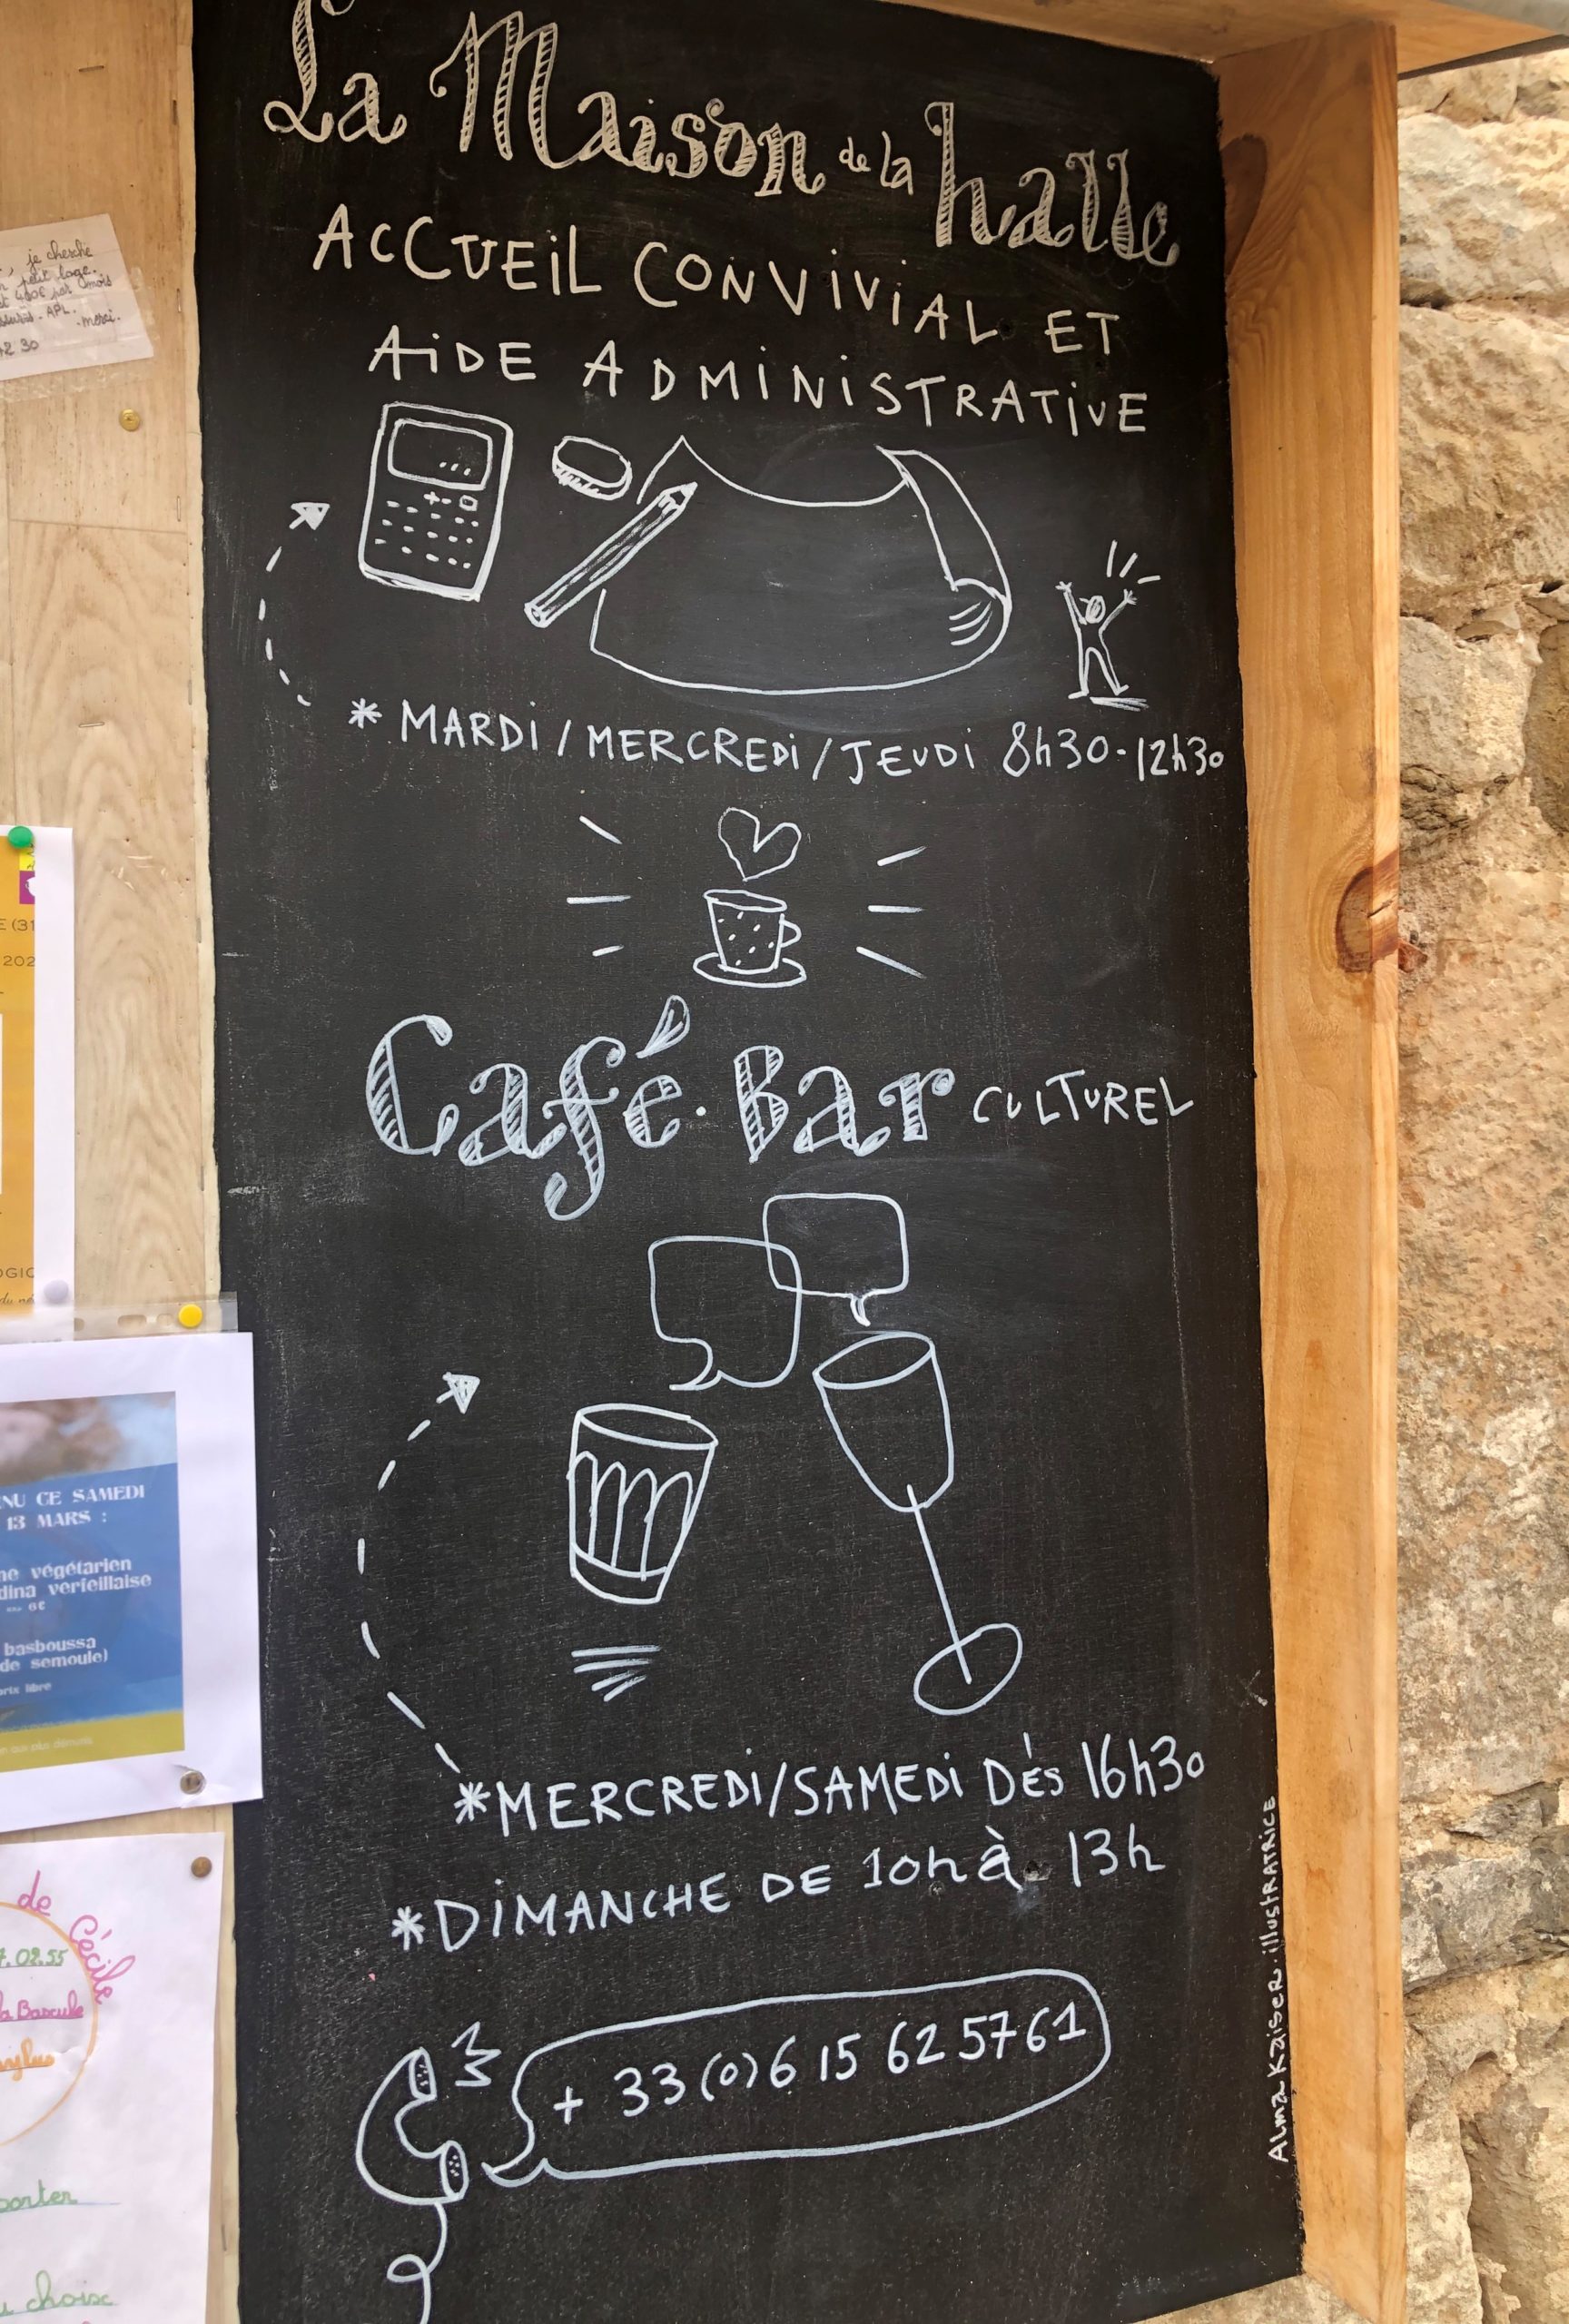 La Maison de la halle
ACCUEIL CONVIVIAL ET
AIDE ADMINISTRATIVE
* MARDI / MERCREDI / JEUDI 8h30-12h30
Café. Bar CULTUREL
*MERCREDI/SAMEDI DÈS 16h30
*DIMANCHE DE 10h à 13h
+ 33 (0)6 15 62 57 61
Alma Kaiser. illustratrice
je cherche
petit
par mois
APL.
merci.
30
E (31
202
OGIC
du
NU CE SAMEDI
13 MARS :
ne végétarien
dina verfeillaise
6€
basboussa
de semoule)
libre
de Cécile
7.02.55
la Bascule
porter
choix